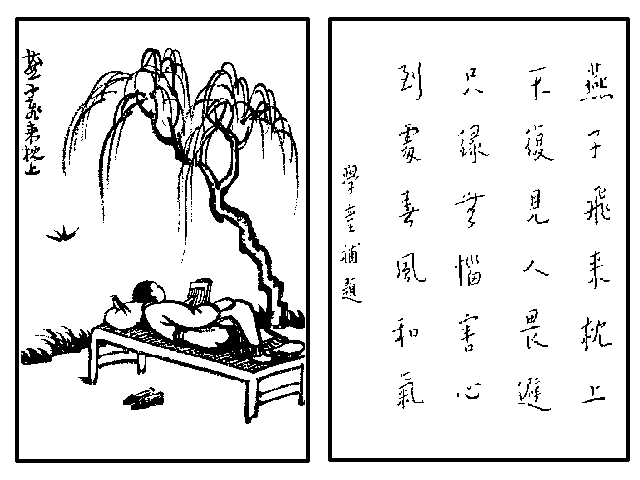 燕子飛來枕上
燕子飛來枕上
不復見人畏避
只緣無惱害心
到處春風和氣
學童補題